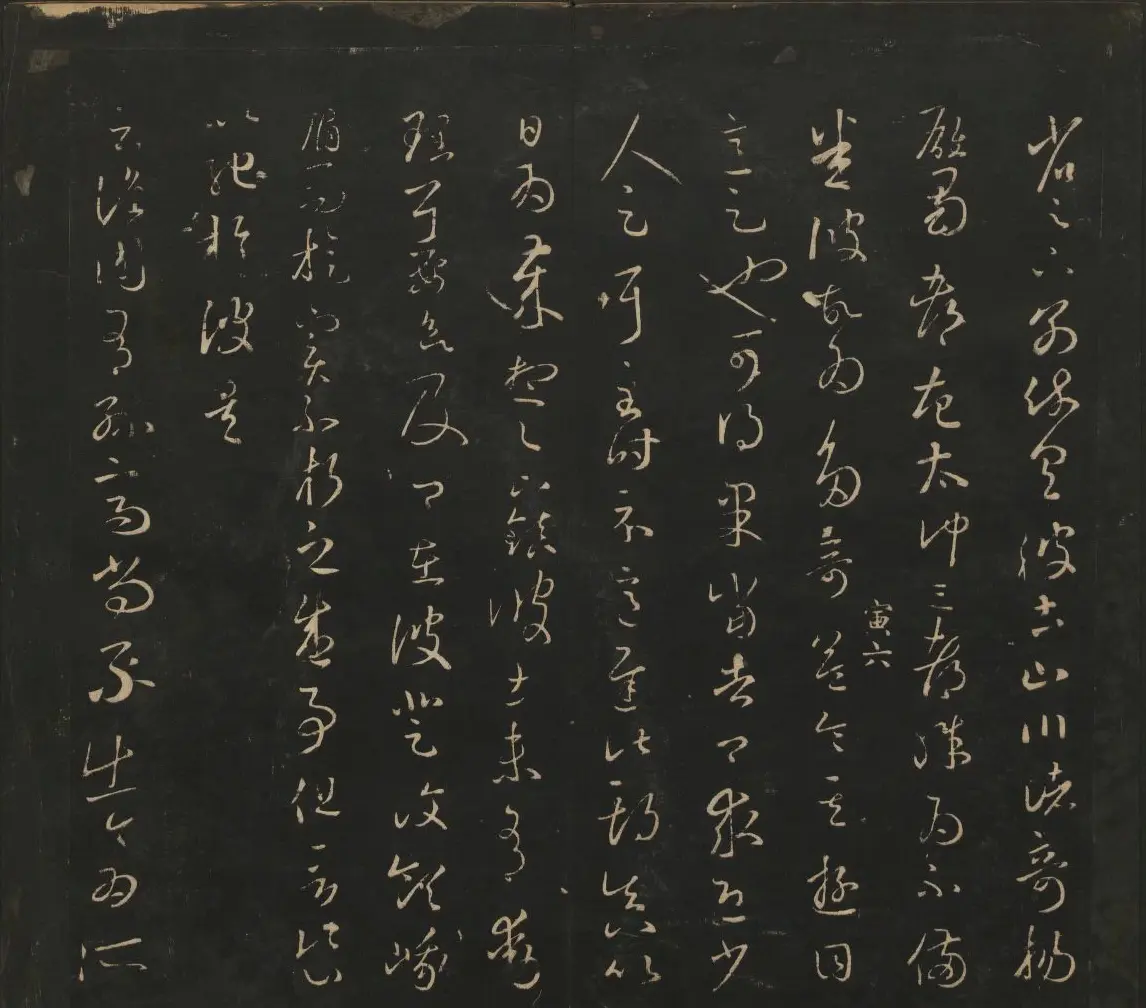 省足下別疏具彼土山川諸奇揚
雄蜀都左太沖三都殊為不備
悉彼故為多奇益令其遊目
寅六
意足也可得果當告卿求迎少
人足耳至時示意遲此期真以
日為歲想足下鎮彼土未有動
理耳要欲及卿在彼登汶領峨
眉而旋實不朽之盛事但言此心
以馳於彼矣
云譙周有孫高尚不出今為所